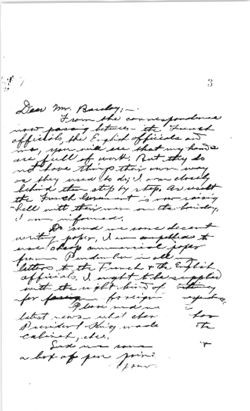 3
Dear Mr. Barclay,—
From the correspondence
now passing between the French
officials, the English officials and
me, you will see that my hands
are full of work. But they do
not have things their own way
as they used to do; I am closely
behind them step by step. As a result
the French Government is now raising
hell with their men on the border,
I am informed.
Do send me some decent
writing paper, I am
use cheap commercial paper
from in all
letters to the French & the English
officials. I ought to be supplied
with the right kind of
for foreign
Please send me
latest news
President King made
the
cabinet, etc.
Send me some
a box of pen points
Your